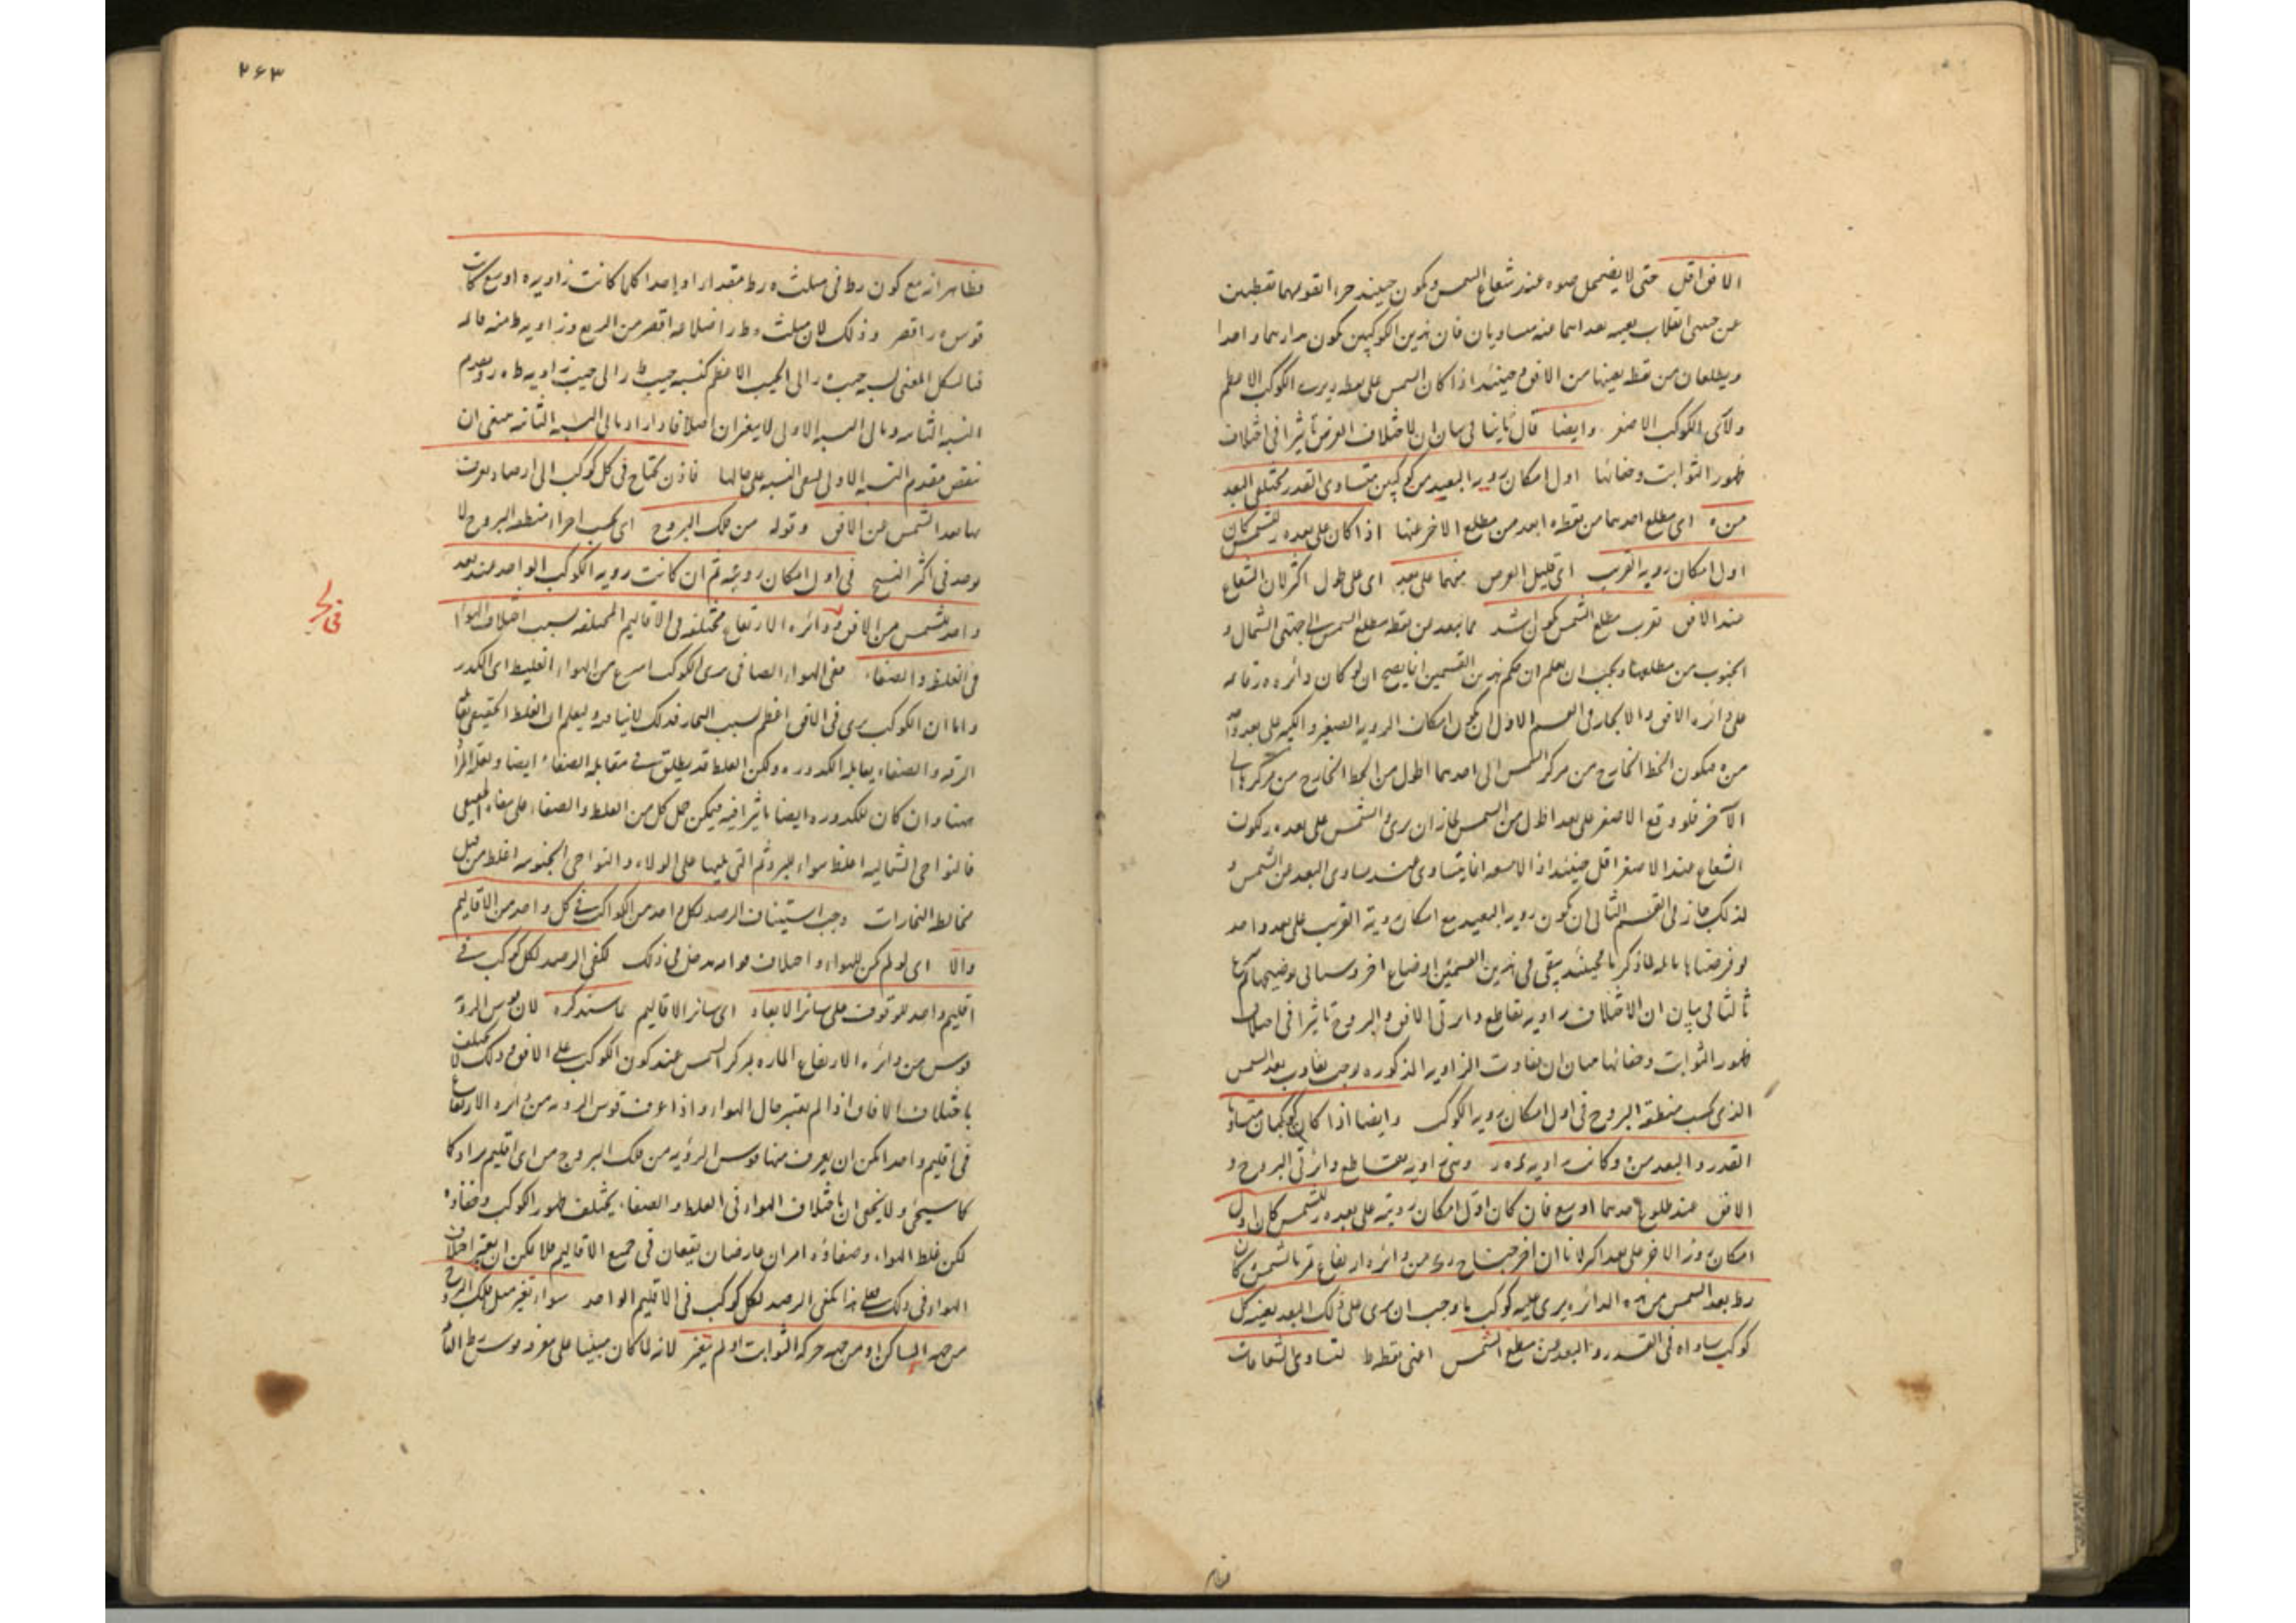 الافق اقل حتى لا يضمحل ضوه عند شعاع الشمس ويكون حينئذ
عن جنبى انقلاب بعينه بعداهما عنه متساويان فان هذين الكوكبين يكون مدارهما واحدا
ويطلعان من نقطة بعينها من الافق وحينئذ اذا كان الشمس على نقطة ر يرى الكوكب الاعظم
ولا يرى الكوكب الاصغر وايضا قال ثانيا فى بيان ان لاختلاف العرض تاثيرا فى اختلاف
ظهور الثوابت وخفائها اول امكان رويه البعيد من كوكبين متساوى القدر مختلفى البعد
من ه اى مطلع احدهما من نقطة ه ابعد من مطلع الاخر عنها اذا كان على بعد ه ر للشمس كان
اول امكان رويه القريب اى قليل العرض منهما على بعد اى على طول اكثر لان الشعاع
عند الافق بقرب مطلع الشمس يكون اشد مما يبعد من نقطة مطلع الشمس الى جهتى الشمال و
الجنوب من مطلعها ويجب ان يعلم ان حكم هذين القسمين انما يصح ان لو كان دائره ه ر قائمه
على دائره الافق والا لجاز فى القسم الاول ان يكون امكان الرويه الصغير والكبير على بعد واحد
من ه فيكون الخط الخارج من مركز الشمس الى احدهما اطول من الخط الخارج من مركزها الى
الآخر فلو وقع الاصغر على بعد اطول من الشمس لجاز ان يرى والشمس على بعد ه ر لكون
الشعاع عند الاصغر اقل حينئذ اذ الاشعه انما يتساوى عند تساوى البعد من الشمس و
لذلك جاز فى القسم الثانى ان يكون رويه البعيد مع امكان روية القريب على بعد واحد
لو فرضناها مائله لما ذكرنا فحينئذ يبقى فى هذين القسمين اوضاع اخر وسياتى توضيحها ثم
ثالثا فى بيان ان لاختلاف زاويه تقاطع دائرتى الافق والبروج تاثيرا فى اختلاف
ظهور الثوابت وخفائها فبيان ان تفاوت الزاويه المذكوره يوجب تفاوت بعد الشمس
الذى بحسب منطقة البروج فى اول امكان رويه الكوكب وايضا اذا كان كوكبان متساو
القدر والبعد من ه وكانت زاويه ه ر وهى زاويه تقاطع دائرتى البروج و
الافق عند طلوع احدهما اوسع فان كان اول امكان رويته على بعد ه ر للشمس كان اول
امكان روية الاخر على بعد اكثر لانا ان اخرجنا من دائره ارتفاع تمر بالشمس كان
ر ط بعد الشمس من هذه الدائره يرى عليه كوكب ما وجب ان يرى على ذلك البعد بعينه كل
كوكب ساواه فى القدر والبعد من مطلع الشمس اعنى نقطه ط لتساوى الشعاعات
٢٦٣
فظاهر انه مع كون ر ط فى مثلث ه ر ط مقدارا واحدا كلما كانت زاويه ه اوسع كانت
قوس ه ر اقصر وذلك لان مثلث ه ط ر اضلاعه اقصر من الربع وزاويه ط منه قائمه
فبالشكل المغنى نسبه جيب ه ر الى الجيب الاعظم كنسبه جيب ط ر الى جيب زاويه ط ه ر ومقدم
النسبه الثانيه وتالى النسبه الاولى لا يتغيران اصلا فاذا ازداد تالى النسبه الثانيه ينبغى ان
ينقص مقدم النسبه الاولى لتبقى النسبه على حالها فاذن تحتاج فى كل كوكب الى ارصاد يعرف
بها بعد الشمس عن الافق وقوله من فلك البروج اى بحسب اجزاء منطقه البروج لا
يوجد فى اكثر النسخ فى اول امكان رويته ثم ان كانت رويه الكوكب الواحد عند بعد
واحد للشمس من الافق فى دائره الارتفاع مختلفه فى الاقاليم المختلفه بسبب اختلاف الهواء
فى الغلظ والصفاء ففى الهواء الصافى يرى الكوكب اسرع من الهواء الغليظ اى الكدر
واما ان الكوكب يرى فى الافق اعظم بسبب البخار فذلك لا ينافيه وليعلم ان الغلظ الحقيقى
الرقه والصفاء يقابله الكدوره ولكن الغلظ قد يطلق فى مقابله الصفاء ايضا ولعله المراد
هنا وان كان للكدوره ايضا تاثيرا فيه فيمكن حمل كل من الغلظ والصفاء على معناه الحقيقى
فالنواحى الشماليه اغلظ هواء للبرد ثم التى يليها على الولاء والنواحى الجنوبيه اغلظ من قبل
مخالطه البخارات وجب استيناف الرصد لكل واحد من الكواكب فى كل واحد من الاقاليم
والا اى لو لم يكن للهواء واختلاف مدخل فى ذلك لكفى الرصد لكل كوكب فى
اقليم واحد للوقوف على سائر الابعاد اى سائر الاقاليم بما ستذكره لان قوس الروية
قوس من دائره الارتفاع الماره بمركز الشمس عند كون الكوكب على الافق وذلك لا يختلف
باختلاف الافاق اذا لم يعتبر حال الهواء واذا عرف قوس الرويه من دائره الارتفاع
فى اقليم واحد امكن ان يعرف منها قوس الرؤيه من فلك البروج من اى اقليم يراد كا
كما سيجئ ولا يخفى ان باختلاف الهواء فى الغلظ والصفاء يختلف ظهور الكوكب وخفاؤه
لكن غلظ الهواء وصفاؤه امران عارضان يقعان فى جميع الاقاليم فلا يمكن ان يعتبر اختلاف
الهواء فى ذلك فعلى هذا يكفى الرصد لكل كوكب فى الاقليم الواحد سواء تغير ميل فلك البروج و
من جهه المساكن او من جهه حركه الثوابت او لم يتغير لانه لما كان مبنيا على معرفه قوس ر ط